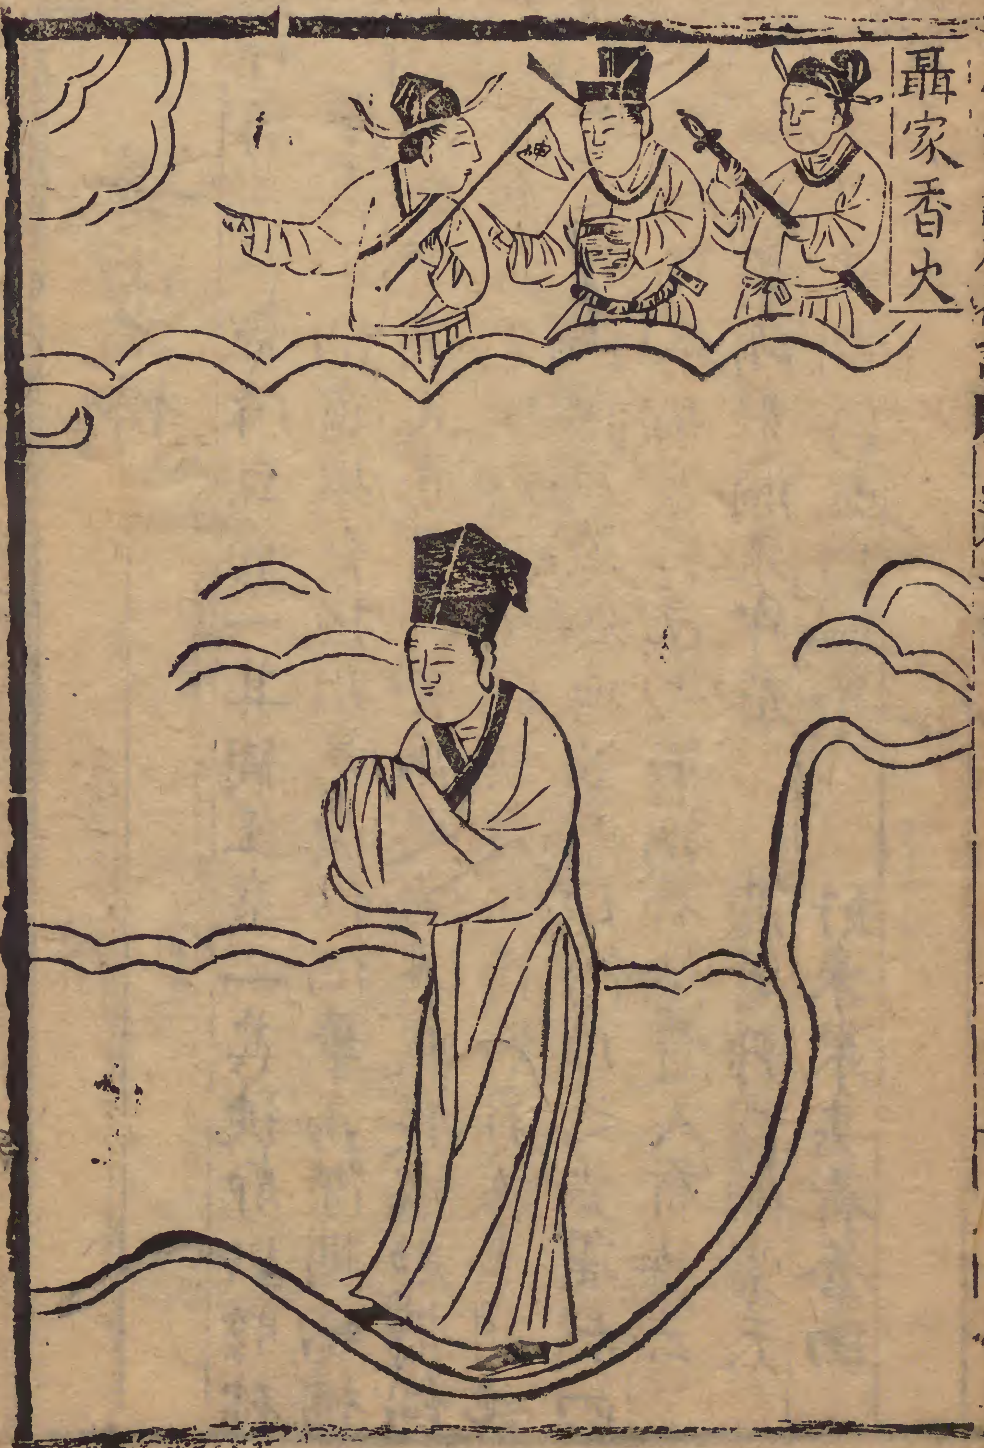 聶家香火
神